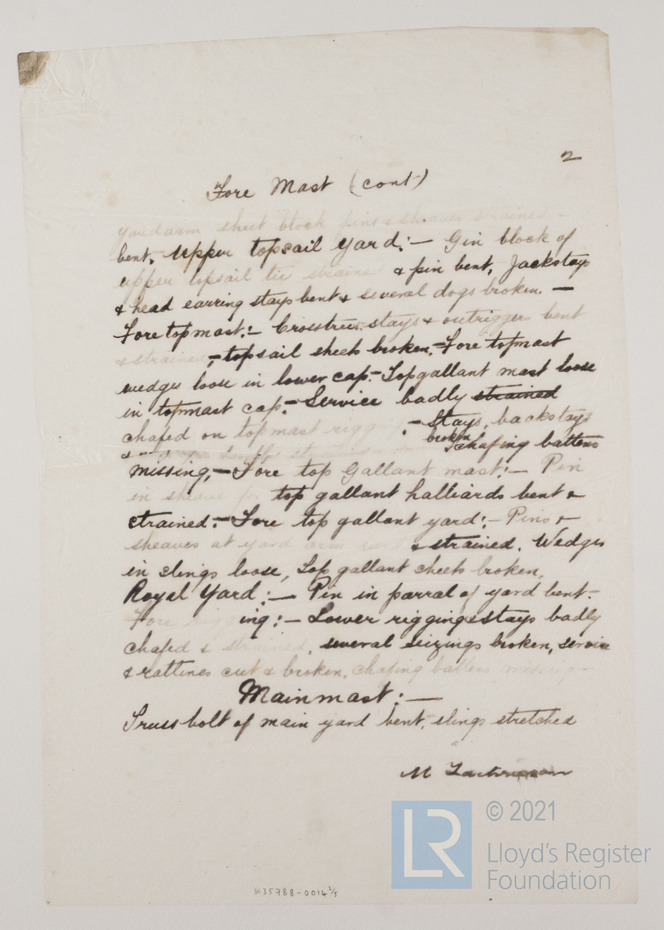 2
Fore Mast (cont)
yardarm sheet block pins & sheaves strained -
bent. Upper topsail yard:- Gin block of
upper topsail tie strained & pin bent, Jackstay
& head earring stays bent & several dogs broken. -
Fore topmast:- Crosstrees, stays & outrigger bent
& strained, - topsail sheets broken, - Fore topmast
wedges loose in lower cap. - Topgallant mast loose
in topmast cap. - Service badly strained
chafed on topmast rigging. - Stays, backstays
broken, Chafing battens
missing, - Fore top Gallant mast:- Pin
in sheave for top gallant halliards bent &
strained. - Fore top gallant yard:- Pins &
sheaves at yard arm & strained. Wedges
in slings loose, Top gallant sheets broken.
Royal Yard:- Pin in parral of yard bent.
Fore rigging:- Lower rigging & stays badly
chafed & strained, several seizings broken, service
& rattines cut & broken, chafing battens missing -
Mainmast:-
Truss bolt of main yard bent, slings stretched
M
K35788-0014 1/5
© 2021
LR
Lloyd's Register
Foundation